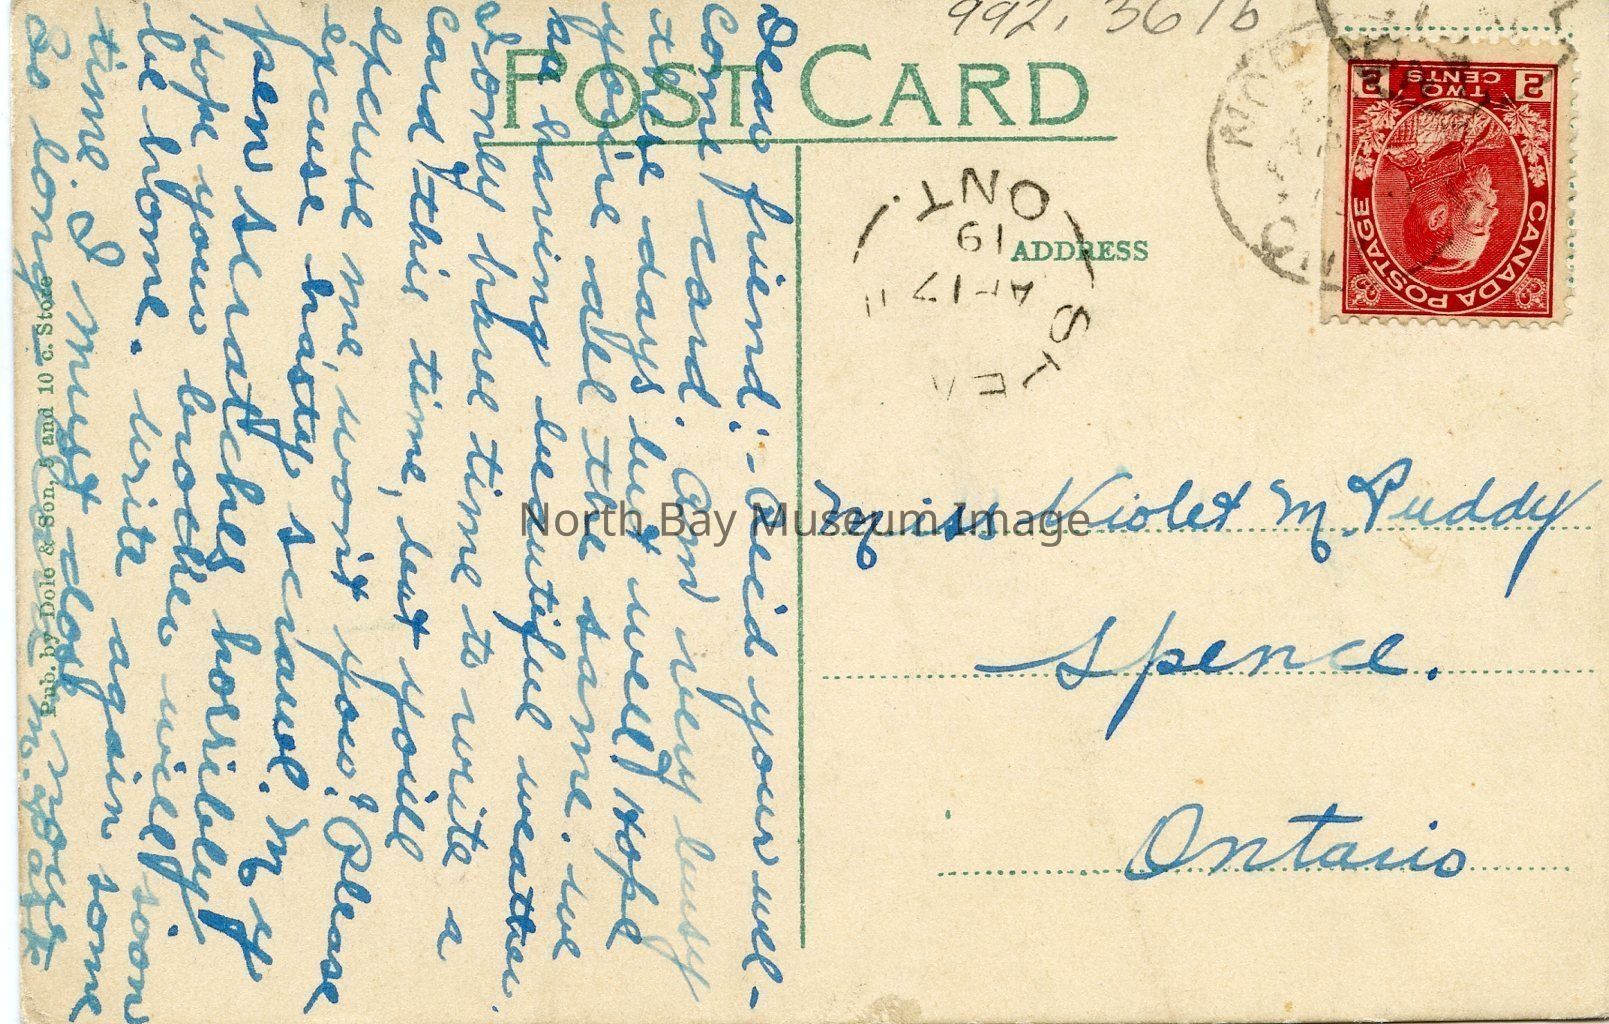 992.3616
POST CARD
ADDRESS
Dear friend:- Rec'd your wel-
come card. Am very busy
these days but well. Hope
you're all the same. we
are having beautiful weather.
I only have time to write a
card this time, but you'll
excuse me, won't you? Please
excuse hasty scrawl. My
pen scratches horribly.
Hope your brother will soon
be home. write again some
time. I must close now.
So long
Pub. by Dole & Son, 5 and 10 c. Store
Miss Violet M. Puddy
Spence.
Ontario
ONT.
19
CANADA POSTAGE
2 TWO CENTS 2
North Bay Museum Image